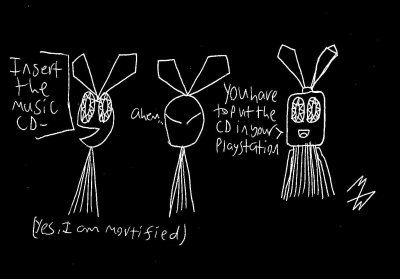 Insert
the
music
CD-
ahem..
You have
to put the
CD in your
Playstation
(Yes, I am mortified)